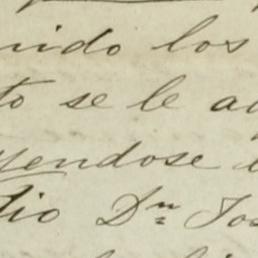 nido los
to se le a
yendose
dio Dn Jos